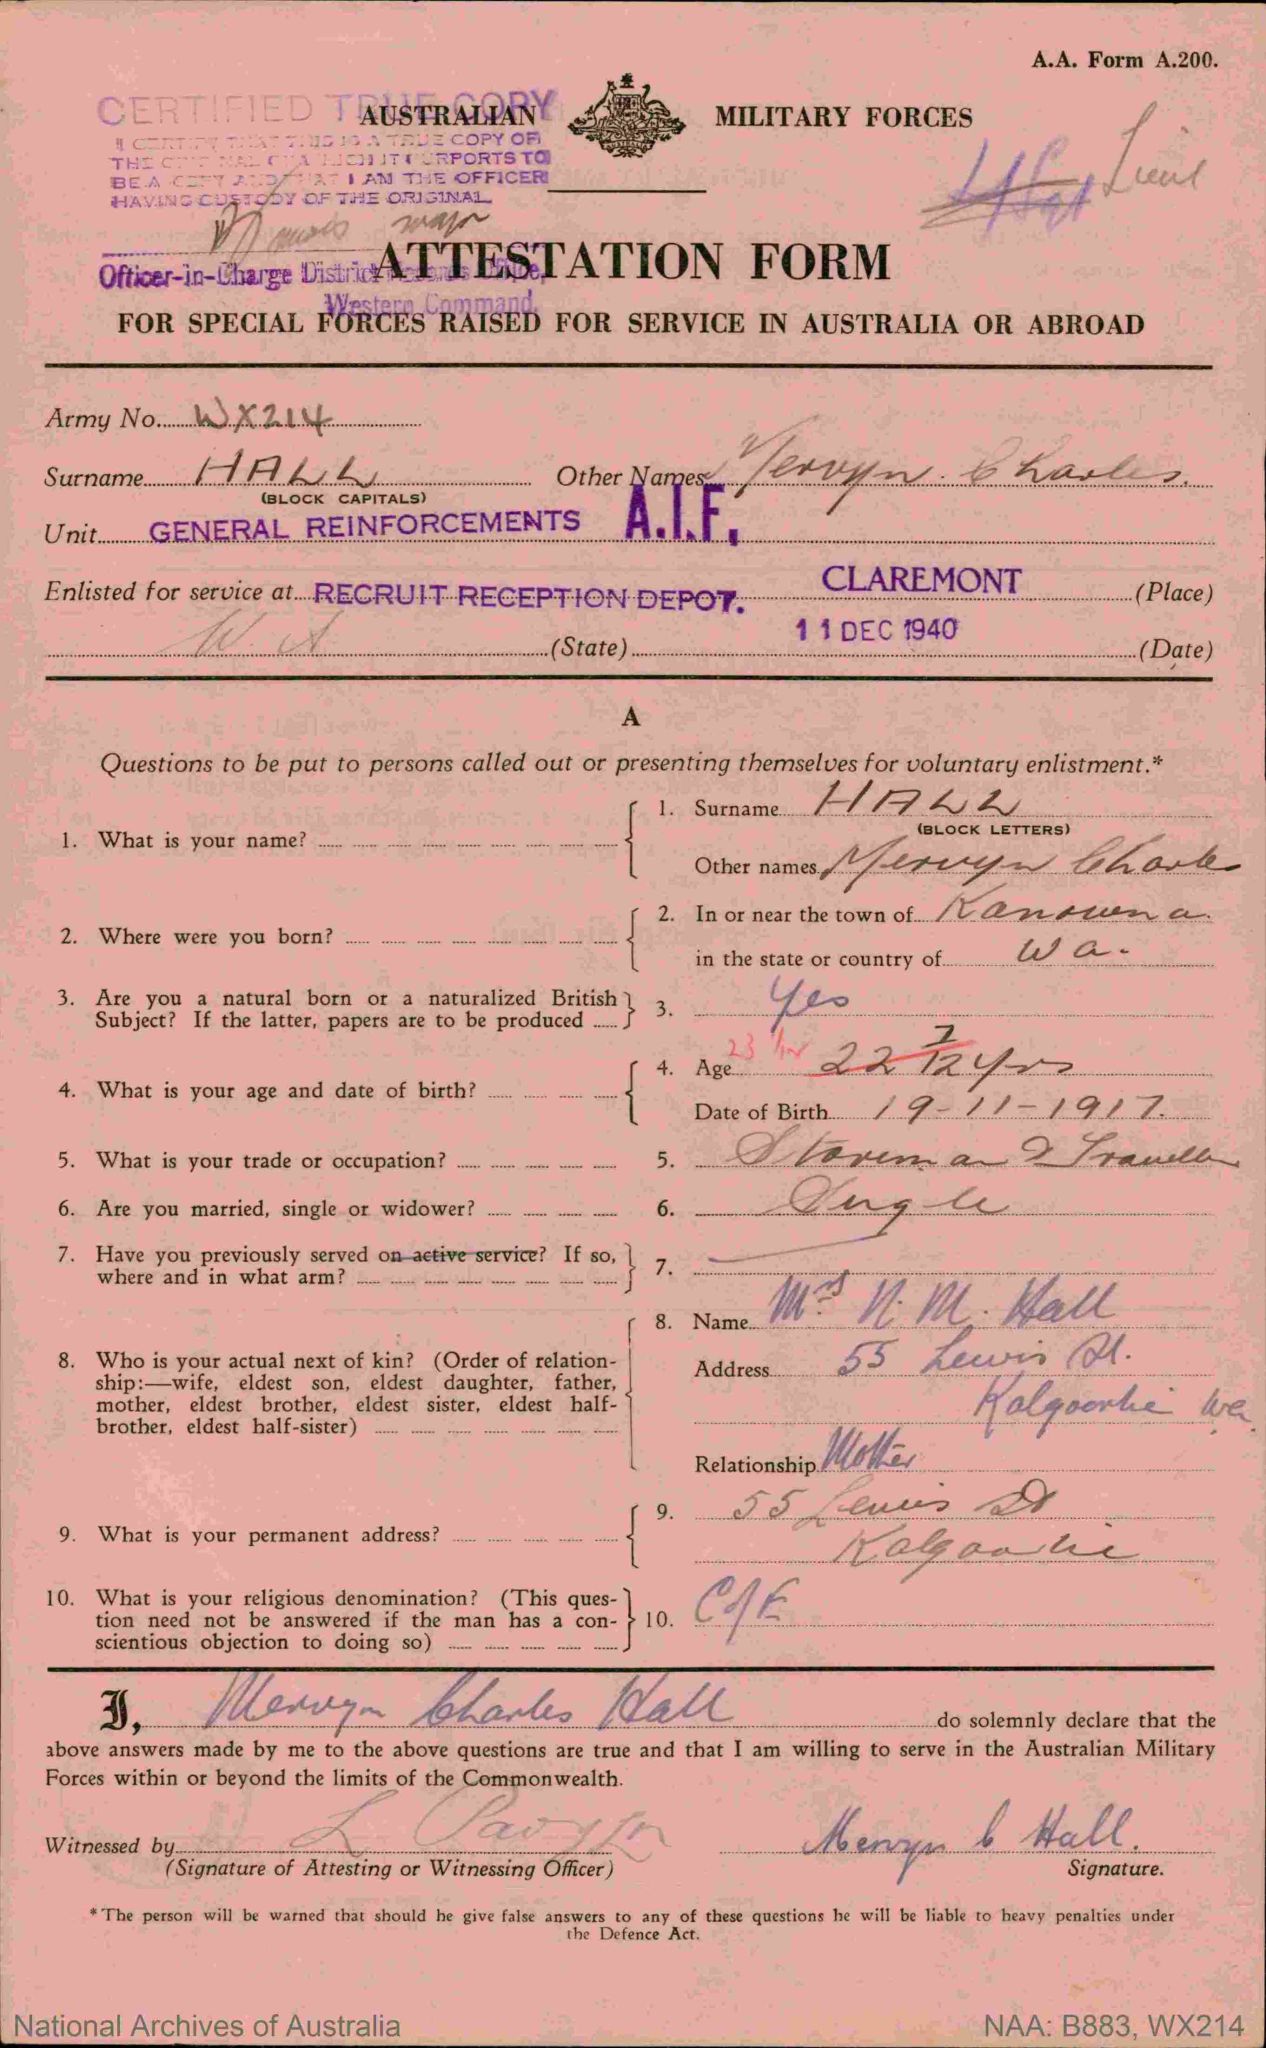 A.A. Form A.200.
CERTIFIED TRUE COPY
AUSTRALIAN MILITARY FORCES
I CERTIFY THAT THIS IS A TRUE COPY OF
THE ORIGINAL OF WHICH IT PURPORTS TO
BE A COPY AND THAT I AM THE OFFICER
HAVING CUSTODY OF THE ORIGINAL
Lieut
Major
Officer-in-Charge District Records Office,
Western Command.
ATTESTATION FORM
FOR SPECIAL FORCES RAISED FOR SERVICE IN AUSTRALIA OR ABROAD
Army No. WX214
Surname HALL Other Names Mervyn Charles.
(BLOCK CAPITALS)
Unit GENERAL REINFORCEMENTS A.I.F.
Enlisted for service at RECRUIT RECEPTION DEPOT. CLAREMONT (Place)
W A (State) 11 DEC 1940 (Date)
A
Questions to be put to persons called out or presenting themselves for voluntary enlistment.*
1. What is your name? 1. Surname HALL
(BLOCK LETTERS)
Other names Mervyn Charles
2. Where were you born? 2. In or near the town of Kanowna.
in the state or country of W a.
3. Are you a natural born or a naturalized British
Subject? If the latter, papers are to be produced 3. Yes
4. What is your age and date of birth? 4. Age 23 1/12 22 7/12 yrs
Date of Birth 19-11-1917.
5. What is your trade or occupation? 5. Storeman & Traveller
6. Are you married, single or widower? 6. Single
7. Have you previously served on active service? If so,
where and in what arm? 7.
8. Who is your actual next of kin? (Order of relation-
ship:—wife, eldest son, eldest daughter, father,
mother, eldest brother, eldest sister, eldest half-
brother, eldest half-sister)
8. Name Mrs N. M. Hall
Address 55 Lewis St.
Kalgoorlie Wa.
Relationship Mother
9. What is your permanent address? 9. 55 Lewis St
Kalgoorlie
10. What is your religious denomination? (This ques-
tion need not be answered if the man has a con-
scientious objection to doing so) 10. C of E
I, Mervyn Charles Hall do solemnly declare that the
above answers made by me to the above questions are true and that I am willing to serve in the Australian Military
Forces within or beyond the limits of the Commonwealth.
Witnessed by L Mervyn C Hall.
(Signature of Attesting or Witnessing Officer) Signature.
*The person will be warned that should he give false answers to any of these questions he will be liable to heavy penalties under
the Defence Act.
National Archives of Australia NAA: B883, WX214